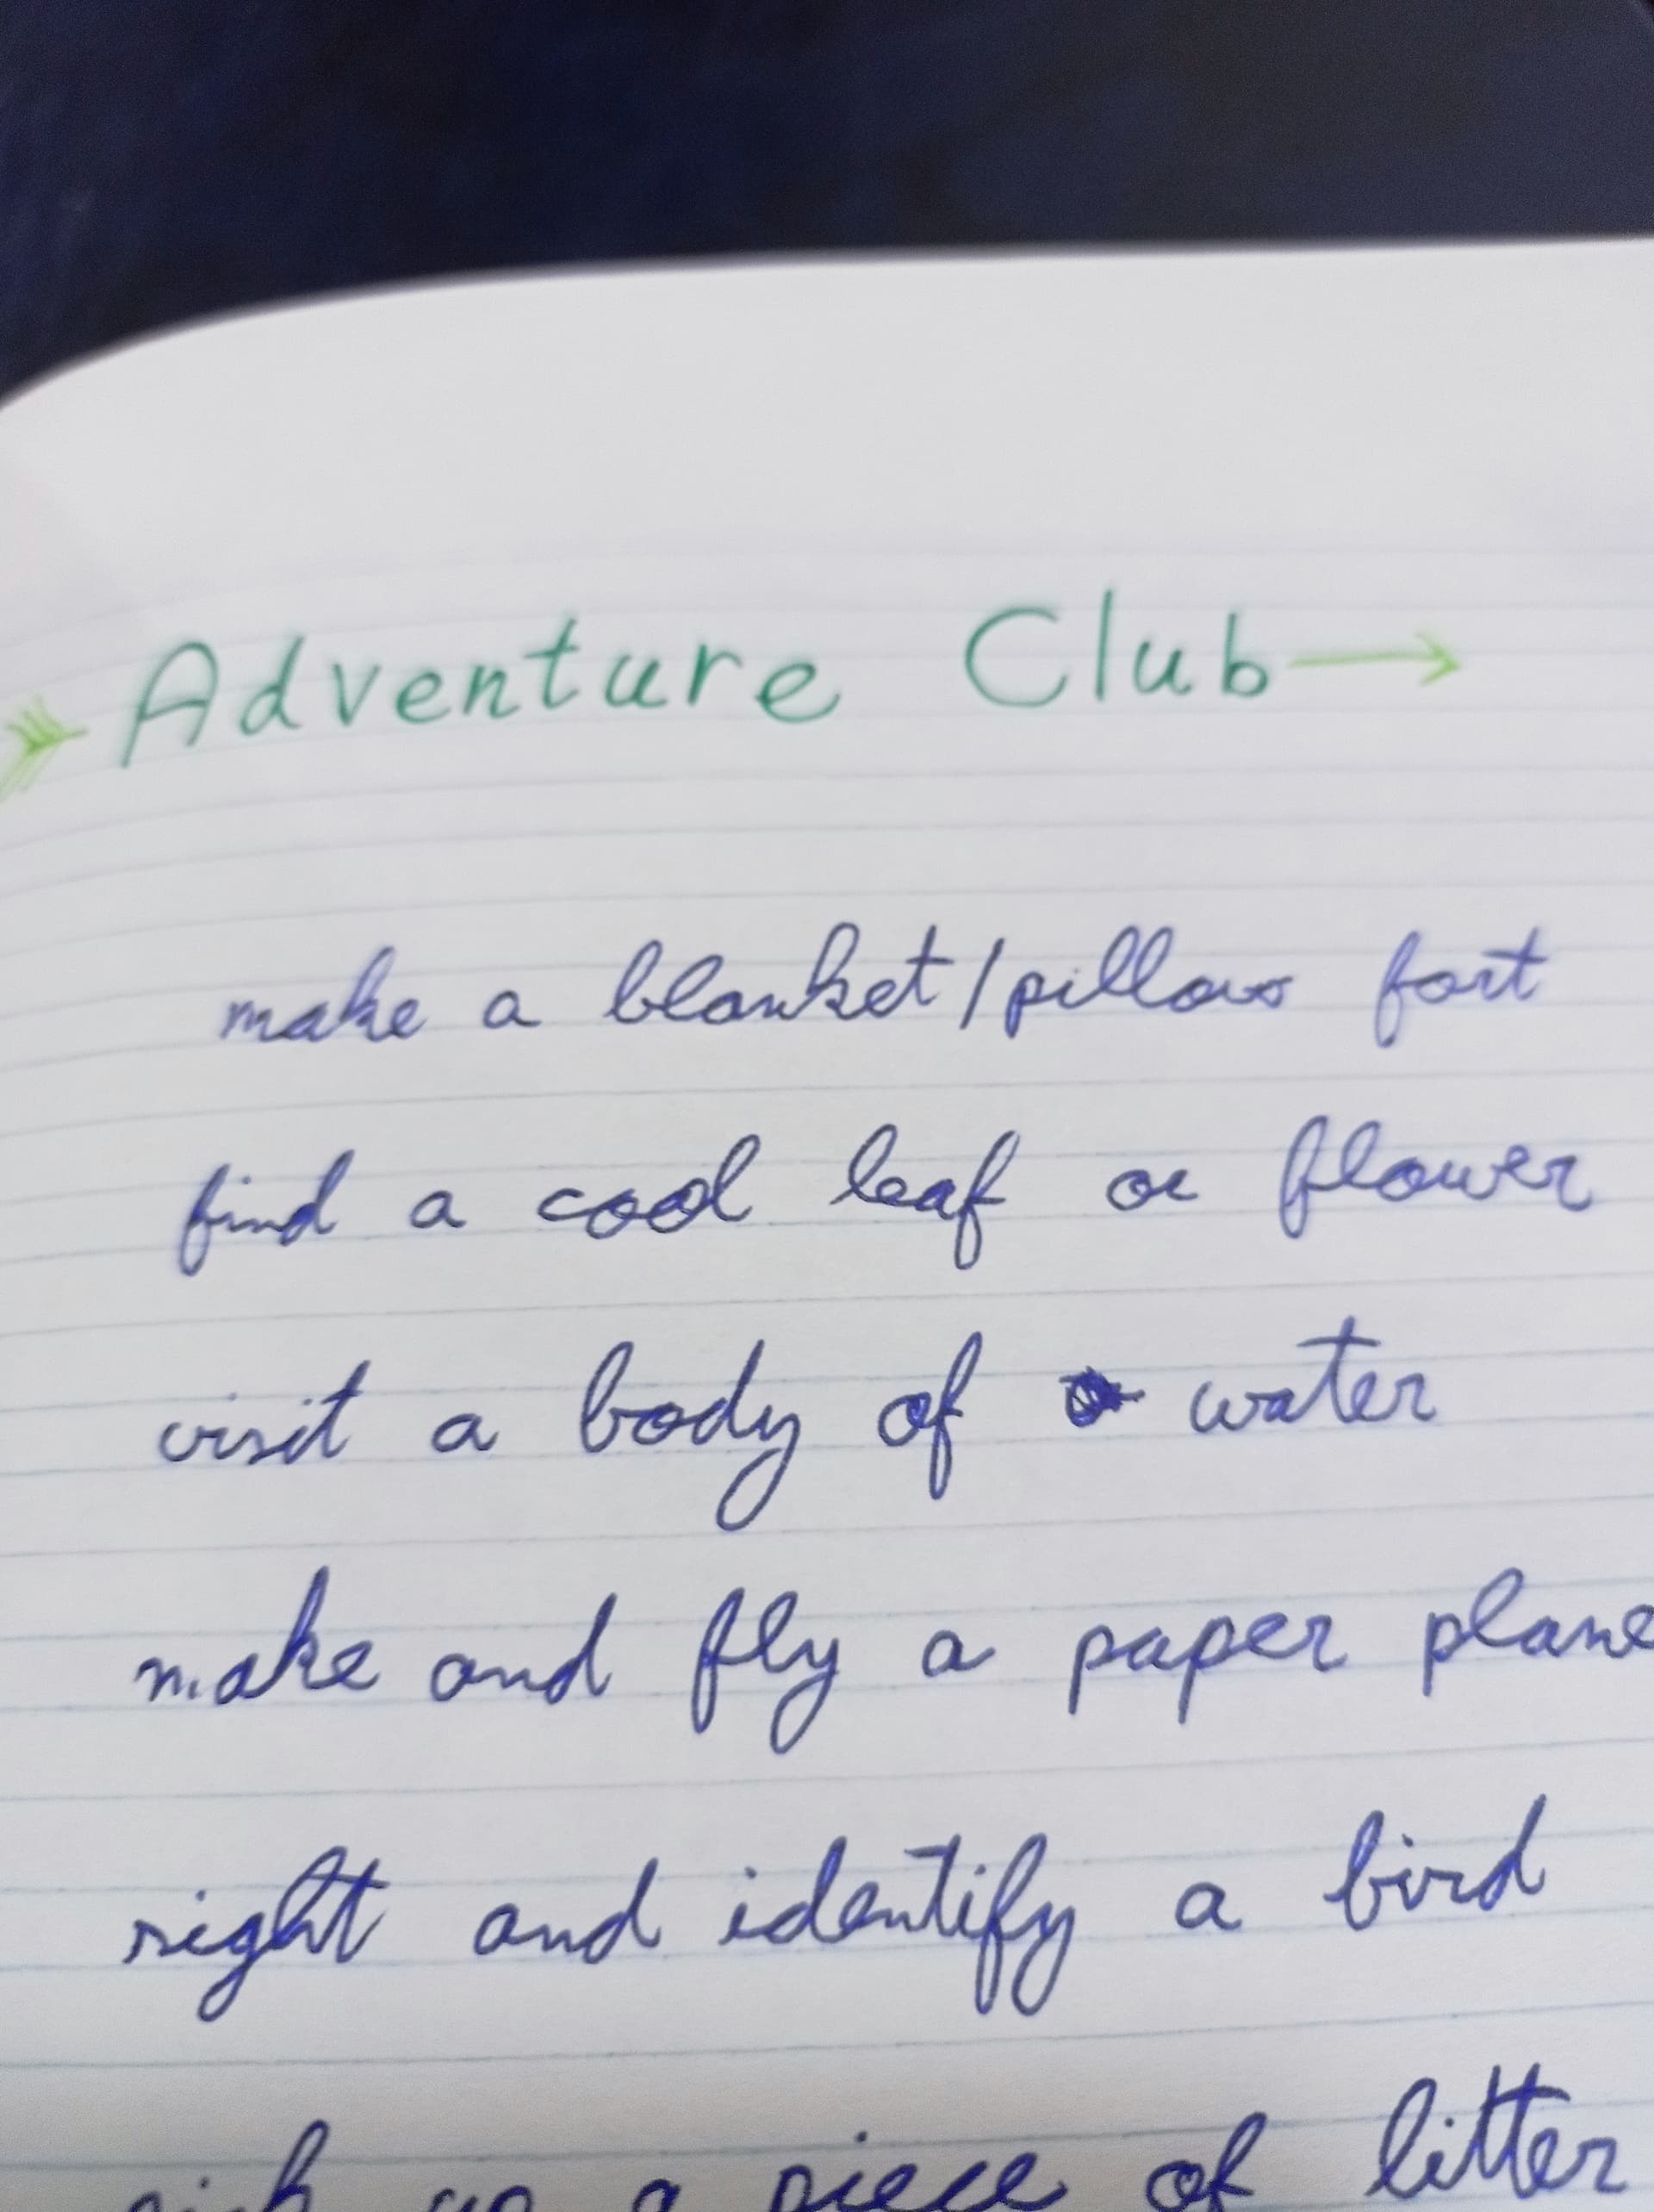 Adventure Club
make a blanket/pillow fort
find a cool leaf or flower
visit a body of water
make and fly a paper plane
right and identify a bird
pick up a piece of litter